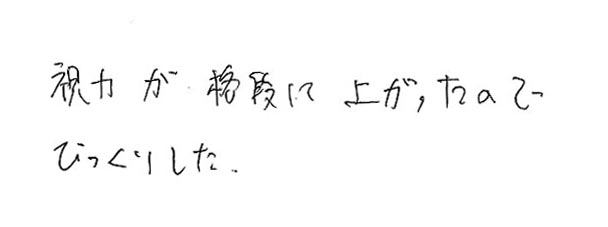 視力が格段に上がったので
びっくりした.